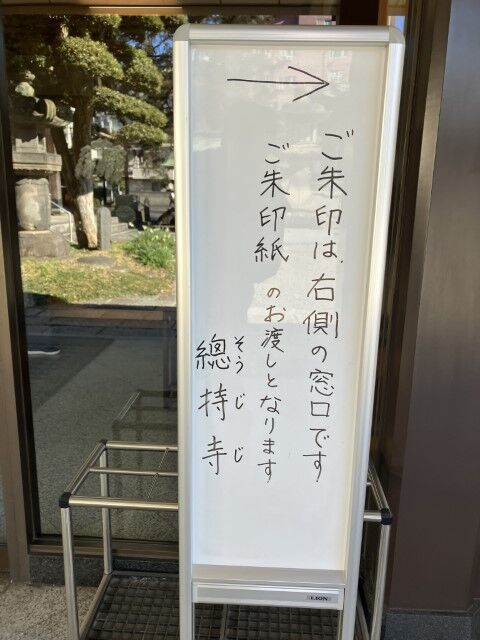 →
ご朱印は、右側の窓口です
ご朱印紙のお渡しとなります
總持寺
そうじじ
LION